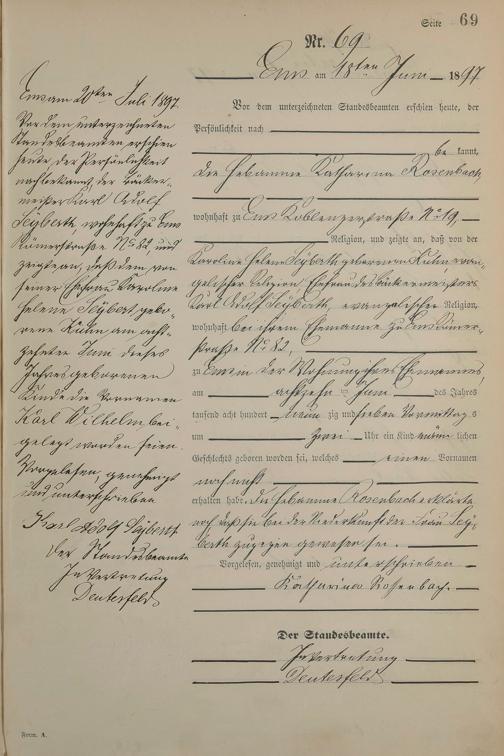 Seite 69
Nr. 69
Ems am 18ten Juni 1897
Vor dem unterzeichneten Standesbeamten erschien heute, der
Persönlichkeit nach
bekannt,
die Hebamme Katharina Rosenbach
wohnhaft zu Ems Koblenzerstraße No 19,
Religion, und zeigte an, daß von der
Karoline Helene Seyberth, geborenen Kuhn, evan-
gelischer Religion, Ehefrau des Bäckermeisters
Karl Adolf Seyberth, evangelischer Religion,
wohnhaft bei ihrem Ehemanne zu Ems Römer-
straße No 82,
zu Ems in der Wohnung ihres Ehemannes,
am achtzehn ten Juni des Jahres
tausend acht hundert neun zig und sieben Vormittags
um zwei Uhr ein Kind männlichen
Geschlechts geboren worden sei, welches einen Vornamen
noch nicht
erhalten habe. Die Hebamme Rosenbach erklärte
noch daß sie bei der Niederkunft der Frau Sey-
berth zugegen gewesen sei.
Vorgelesen, genehmigt und unterschrieben
Katharina Rosenbach
Der Standesbeamte.
In Vertretung
Deutesfeld
Ems am 20ten Juli 1897.
Vor dem unterzeichneten
Standesbeamten erschien
heute, der Persönlichkeit
nach bekannt, der Bäcker-
meister Karl Adolf
Seyberth, wohnhaft zu Ems
Römerstraße No 82, und
zeigte an, daß dem von
seiner Ehefrau Karoline
Helene Seybert, gebo-
rene Kuhn, am acht-
zehnten Juni dieses
Jahres geborenen
Kinde die Vornamen
Karl Wilhelm bei-
gelegt worden seien.
Vorgelesen, genehmigt
und unterschrieben
Karl Adolf Seyberth
Der Standesbeamte
In Vertretung
Deutesfeld
Form. A.